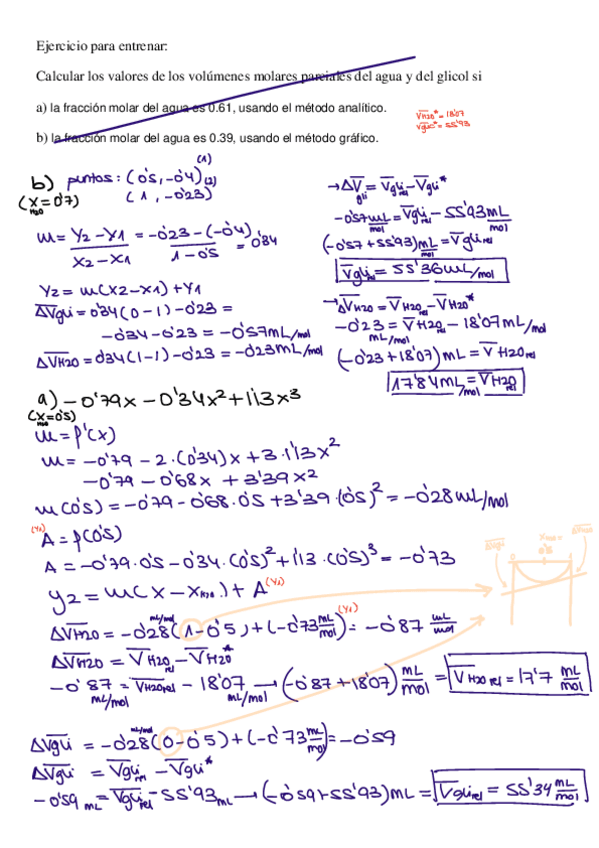 Ejercicio para entrenar:
Calcular los valores de los volúmenes molares parciales del agua y del glicol si
a) la fracción molar del agua es 0.61, usando el método analítico.
V̅H2O* = 18'07
V̅gli* = 55'93
b) la fracción molar del agua es 0.39, usando el método gráfico.
b) puntos: (0'5, -0'4) (1)
(X H2O = 0'7)
(1, -0'23) (2)
m = (Y2 - Y1)/(X2 - X1) = (-0'23 - (-0'4))/(1 - 0'5) = 0'34
Y2 = m(X2 - X1) + Y1
ΔV̅gli = 0'34(0 - 1) - 0'23 =
-0'34 - 0'23 = -0'57 mL/mol
ΔV̅H2O = 0'34(1 - 1) - 0'23 = -0'23 mL/mol
→ ΔV̅gli = V̅gli - V̅gli*
-0'57 mL/mol = V̅gli rel - 55'93 mL/mol
(-0'57 + 55'93) mL/mol = V̅gli rel
V̅gli rel = 55'36 mL/mol
→ ΔV̅H2O = V̅H2O - V̅H2O*
-0'23 mL/mol = V̅H2O rel - 18'07 mL/mol
(-0'23 + 18'07) mL/mol = V̅H2O rel
17'84 mL/mol = V̅H2O rel
a) -0'79x - 0'34x² + 1'13x³
(X H2O = 0'5)
m = P'(x)
m = -0'79 - 2·(0'34)x + 3·1'13x²
-0'79 - 0'68x + 3'39x²
m(0'5) = -0'79 - 0'68·0'5 + 3'39·(0'5)² = -0'28 mL/mol
(Y1) A = P(0'5)
A = -0'79·0'5 - 0'34·(0'5)² + 1'13·(0'5)³ = -0'73
y2 = m(X - X H2O) + A (Y1)
ΔV̅H2O = -0'28 mL/mol (1 - 0'5) + (-0'73 mL/mol) (Y1) = -0'87 mL/mol
ΔV̅H2O = V̅H2O rel - V̅H2O*
-0'87 mL/mol = V̅H2O rel - 18'07 mL/mol → (-0'87 + 18'07) mL/mol = V̅H2O rel = 17'7 mL/mol
ΔV̅gli = -0'28 mL/mol (0 - 0'5) + (-0'73 mL/mol) = -0'59
ΔV̅gli = V̅gli rel - V̅gli*
-0'59 mL = V̅gli rel - 55'93 mL → (-0'59 + 55'93) mL = V̅gli rel = 55'34 mL/mol